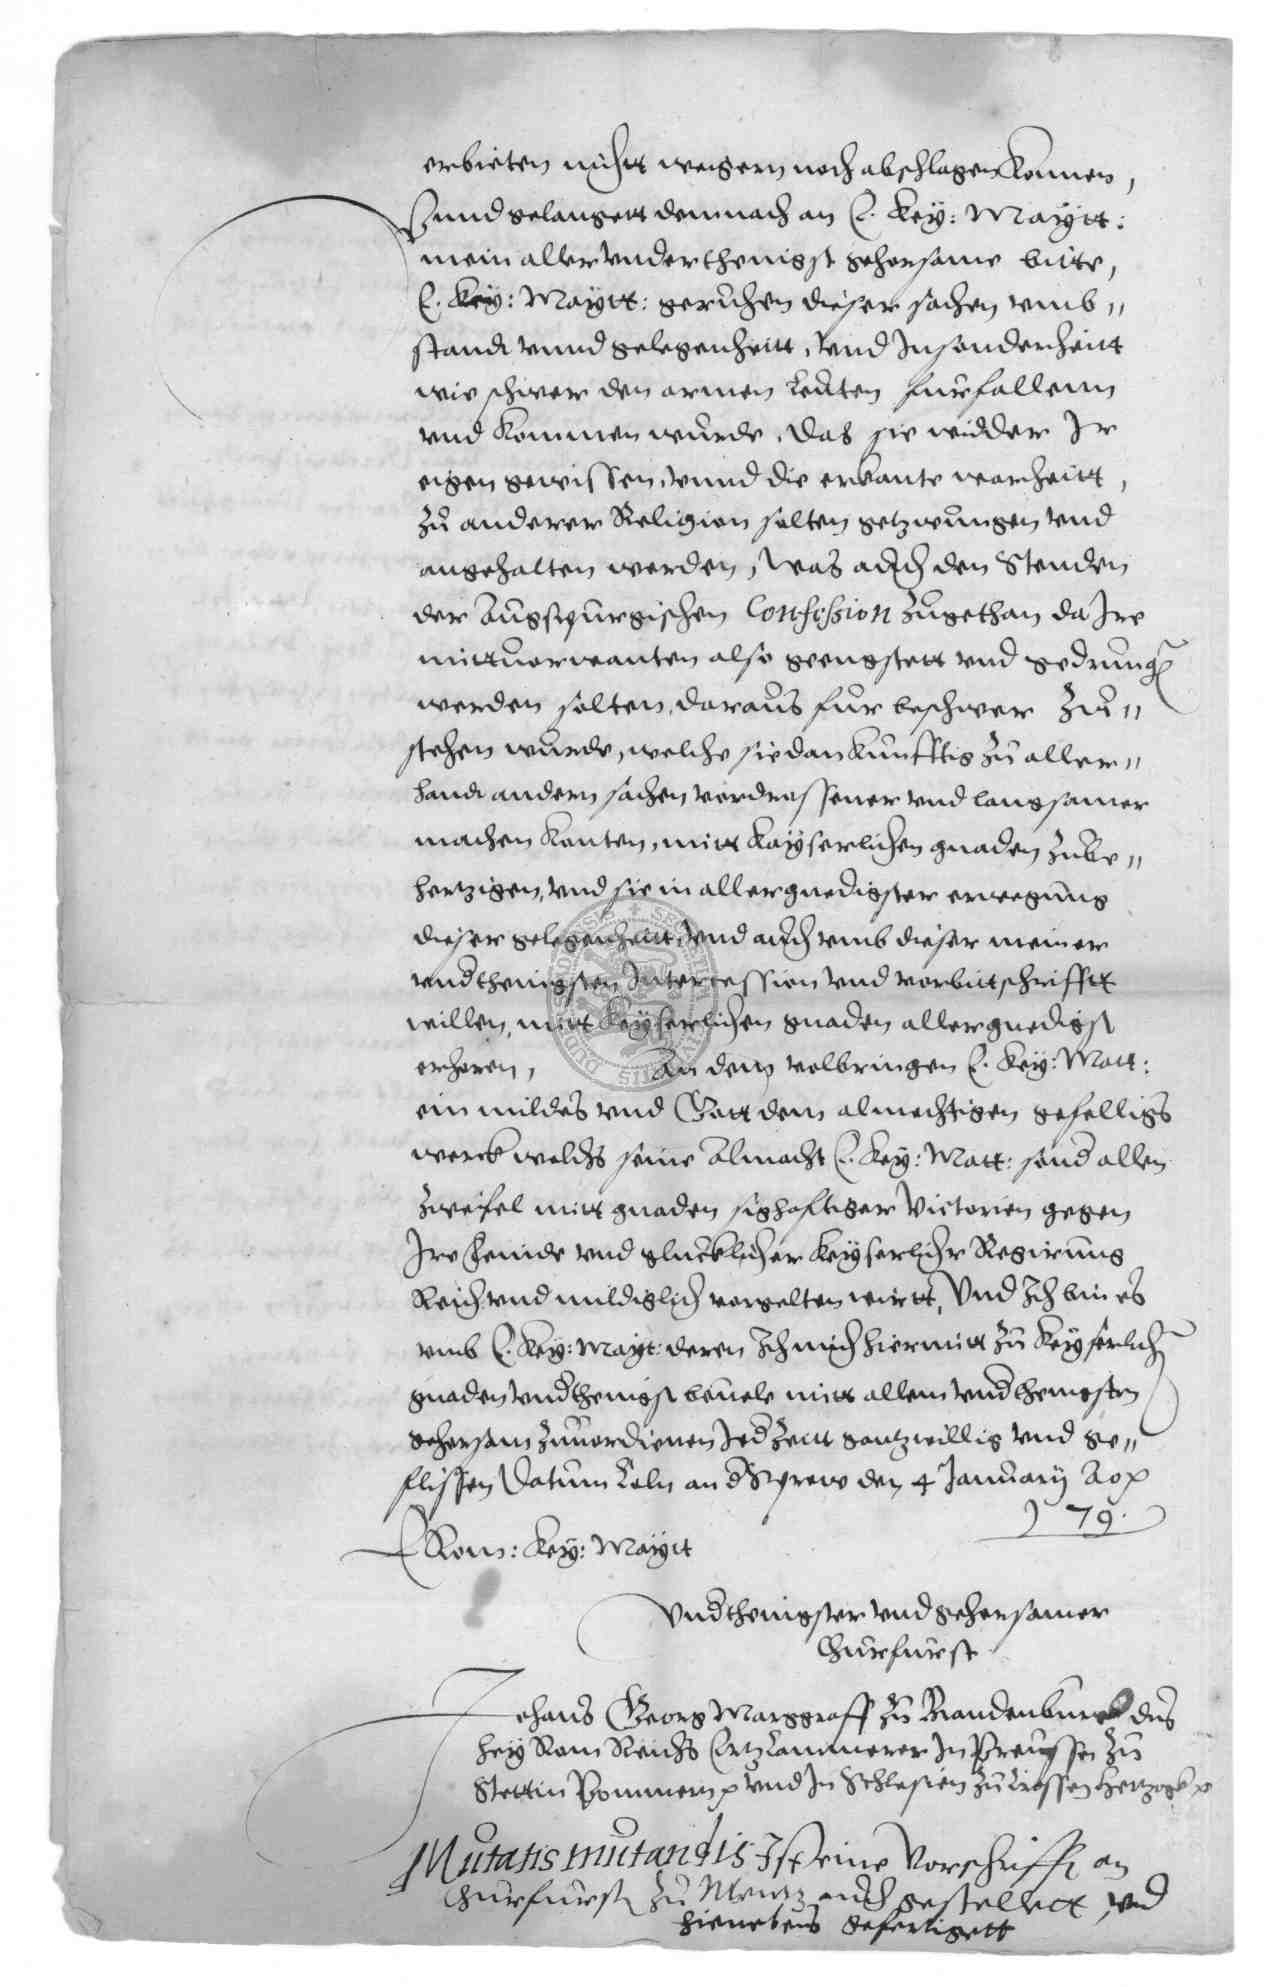 erbieten nichtt weigern noch abschlagen konnen,
Vnnd gelangett demnach an E. Key: Maytt:
mein aller vnderthenigst gehorsame bitte,
E. Key: Maytt: geruchen dieser sachen vmb„
standt vnnd gelegenheitt, Vnd Insonderheitt
wie schwer den armen leuten furfallenn
vnd kommen wurde, das sie widder Ir
eigen gewissen, vnnd die erkante warheitt,
zu anderer Religion solten getzwungen vnd
angehalten werden, Was auch den Stenden
der Augspurgischen Confession zugethan da Ire
mittuorwanten also geengstett vnd gedrungen
werden solten, daraus fur beschwer zu„
stehen wurde, welche sie dan kunfftig zu aller„
handt andern sachen verdrossener vnd langsamer
machen konten, mitt Kayserlichen gnaden zube„
hertzigen, vnd sie in allergnedigster erwegung
dieser gelegenheitt, vnd auch vmb dieser meiner
vndthenigsten Intercession vnd vorbittschrifftt
willen, mitt Keyserlichen gnaden allergnedigst
erhoren, An dem volbringen E. Key: Matt:
ein mildes vnd Gott dem almechtigen gefelligs
werck welchs seine Almacht E. Key: Matt: sond allen
zweifel mitt gnaden sighafftiger Victorien gegen
Ire feinde vnd glucklicher Keyserlicher Regirung
Reich vnd mildiglich vorgelten wirtt, Vnd Ich bin es
vmb E. Key: Mayt: deren Ich mich hiermitt zu Keyserlichen
gnaden vndthenigst beuele mitt allem vndthenigsten
gehorsam zuuordienen Ied Zeitt gantz willig vnd ge„
flissen Datum Coln an d Sprew den 4 January Ao
79.
E Rom: Key: Maytt
Vndthenigster vnd gehorsamer
Churfurst
Johans Georg Marggraff zu Brandenburg des
hey Rom Reichs Ertz Cammerer In Preussen zu
Stettin Pommern vnd In Schlesien zu Crossen Hertzogk
Mutatis mutandis Ist eine Vorschrifft an
Churfurst zu Mentz auch gestellett vnd
hienebens gefertigett